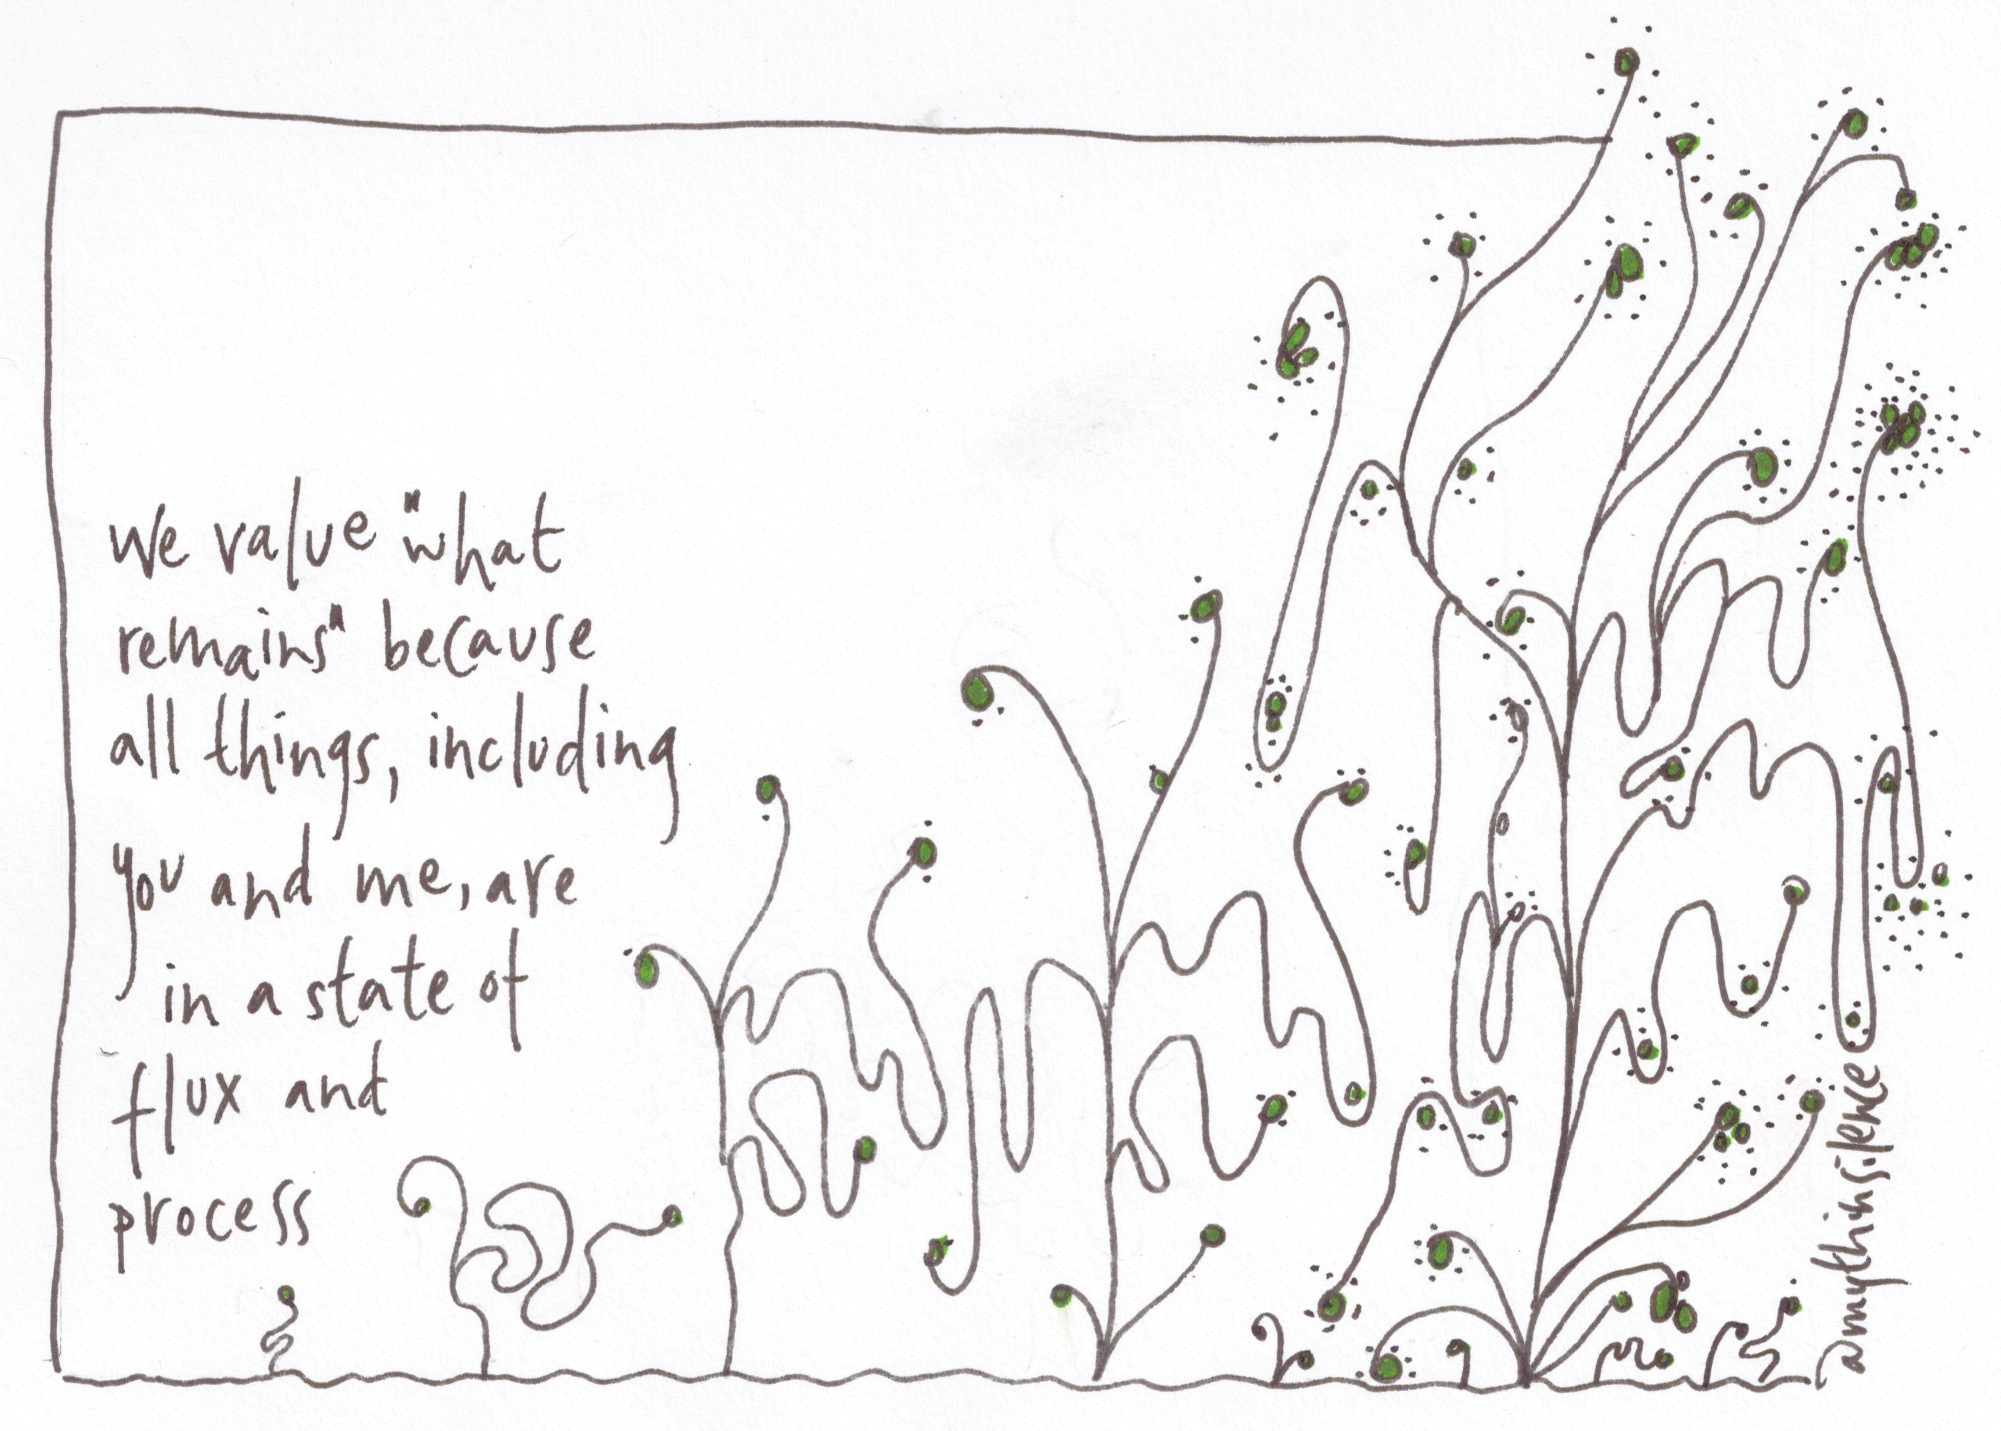 We value "what
remains" because
all things, including
you and me, are
in a state of
flux and
process
amythinsilence